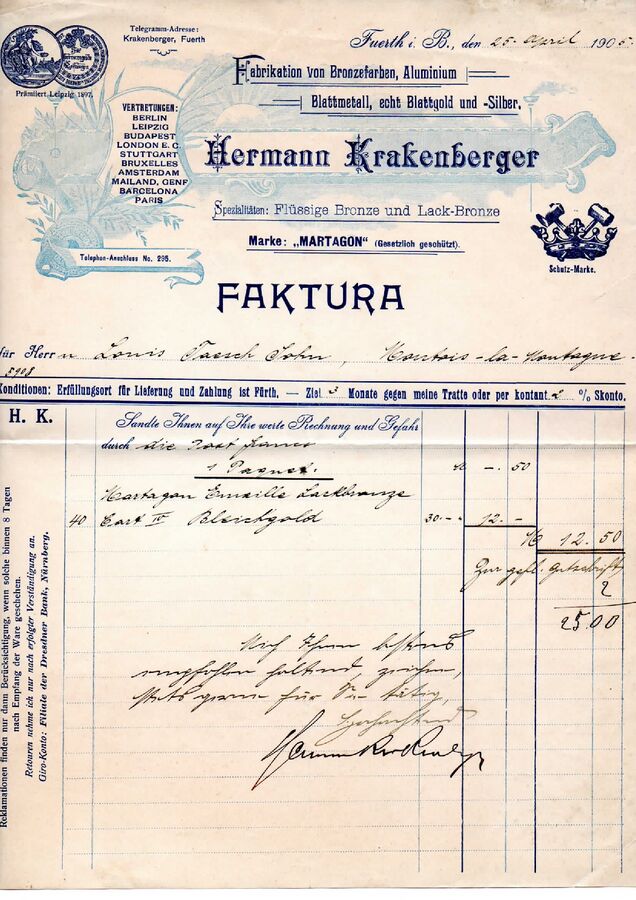 Telegramm-Adresse:
Krakenberger, Fuerth
Prämiiert Leipzig 1897.
Fuerth i. B., den 25. April 1905.
Fabrikation von Bronzefarben, Aluminium
Blattmetall, echt Blattgold und -Silber.
VERTRETUNGEN:
BERLIN
LEIPZIG
BUDAPEST
LONDON E. C.
STUTTGART
BRUXELLES
AMSTERDAM
MAILAND, GENF
BARCELONA
PARIS
Hermann Krakenberger
Spezialitäten: Flüssige Bronze und Lack-Bronze
Marke: „MARTAGON" (Gesetzlich geschützt).
Telephon-Anschluss No. 295.
Schutz-Marke.
FAKTURA
für Herrn Louis John, Montois-la-Montagne
5908
Konditionen: Erfüllungsort für Lieferung und Zahlung ist Fürth. — Ziel 3 Monate gegen meine Tratte oder per kontant 2 % Skonto.
H. K.
Sandte Ihnen auf Ihre werte Rechnung und Gefahr
durch die Post franco
1 Paquet. M -.50
Martagon Emaille Lackbronze
40 Cart IV Bleichgold 30.-- 12.-
M 12.50
Zur gefl. Gutschrift
2
25.00
Mich Ihnen bestens
empfohlen haltend, zeichne
stets gerne für Sie tätig,
Hochachtend
Hermann Krakenberger
Reklamationen finden nur dann Berücksichtigung, wenn solche binnen 8 Tagen
nach Empfang der Ware geschehen.
Retouren nehme ich nur nach erfolgter Verständigung an.
Giro-Konto: Filiale der Dresdner Bank, Nürnberg.